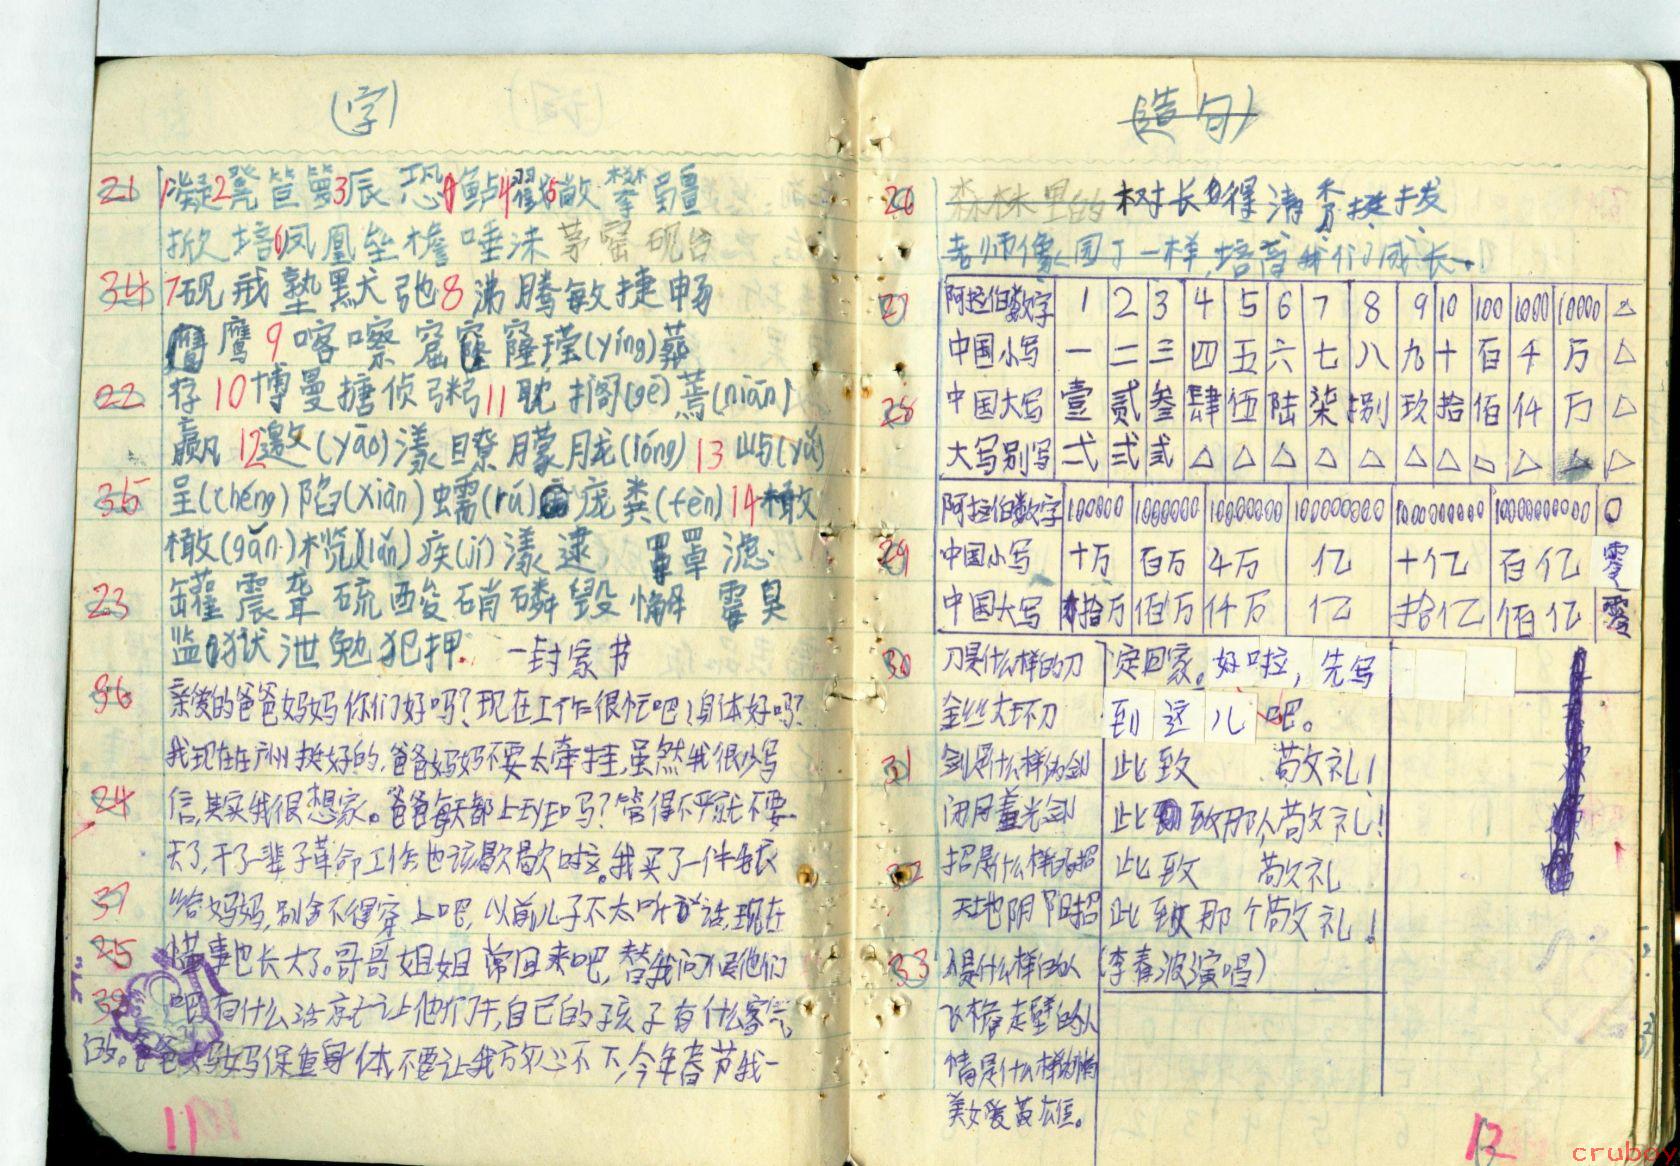 (字)
21 1凝2凳笆箩3辰恐 鲇4戳5敵攀疆
掀培6凤凰垒檐唾沫茅窑砚台
34 7砚戒墊默犬弛8沸腾敏捷畅
鹰9喀嚓窟窿瑾(yíng)葬
22 存10博曼搪侦粥11耽搁(gē)蔫(niān)
赢12邀(yāo)漾瞭朦胧(lóng)13屿(yǔ)
35 呈(chéng)陷(xiàn)蠕(rú)庞粪(fèn)14橄
橄(gǎn)榄(lǎn)疾(jí)漾逮 罩滤
23 罐震聋硫酸硝磷毁懈霉臭
监狱泄勉犯押. 一封家书
36 亲爱的爸爸妈妈你们好吗?现在工作很忙吧!身体好吗?
我现在在广州挺好的,爸爸妈妈不要太牵挂,虽然我很少写
24 信,其实我很想家。爸爸每天都上班吗?管得不严就不要
去了,干了一辈子革命工作也该歇歇啦。我买了一件毛衣
37 给妈妈,别舍不得穿上吧,以前儿子不太听话,现在
25 懂事也长大了。哥哥姐姐常回来吧,替我问候他们
38 吧有什么活就让他们干,自己的孩子有什么客气
的。爸爸妈妈保重身体,不要让我放心不下,今年春节我一
11
(造句)
26 森林里的树长得清秀挺拔
老师像园丁一样,培育我们成长。
27 阿拉伯数字 1 2 3 4 5 6 7 8 9 10 100 1000 10000 △
中国小写 一 二 三 四 五 六 七 八 九 十 百 千 万 △
28 中国大写 壹 贰 叁 肆 伍 陆 柒 捌 玖 拾 佰 仟 万 △
大写别写 弌 弍 弎 △ △ △ △ △ △ △ △ △ △ △
阿拉伯数字 100000 1000000 10000000 100000000 1000000000 10000000000 0
29 中国小写 十万 百万 千万 亿 十亿 百亿 零
中国大写 拾万 佰万 仟万 亿 拾亿 佰亿 零
30 刀是什么样的刀 定回家。好啦,先写
金丝大环刀 到这儿吧。
31 剑是什么样的剑 此致 敬礼!
闭月羞光剑 此致那个敬礼!
32 招是什么样的招 此致 敬礼
天地阴阳招 此致那个敬礼!
33 人是什么样的人 (李春波演唱)
飞檐走壁的人
情是什么样的情
美女爱英雄。
12
cruboy